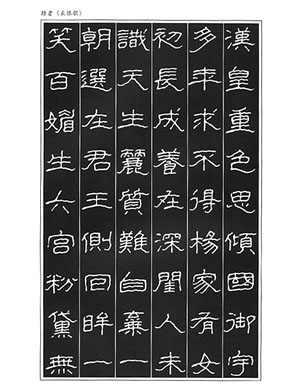 隸書《長恨歌》
漢皇重色思傾國御宇
多年求不得楊家有女
初長成養在深閨人未
識天生麗質難自棄一
朝選在君王側回眸一
笑百媚生六宮粉黛無